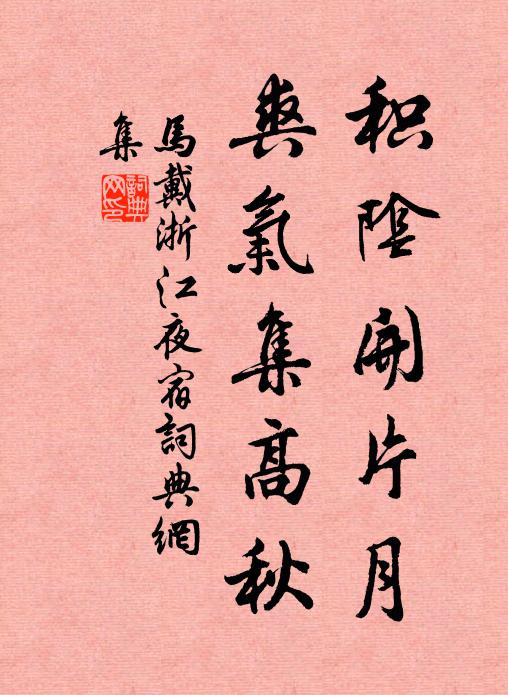 积陰開片月
爽氣集高秋
馬戴浙江夜宿詞典網
集
詞典
网印